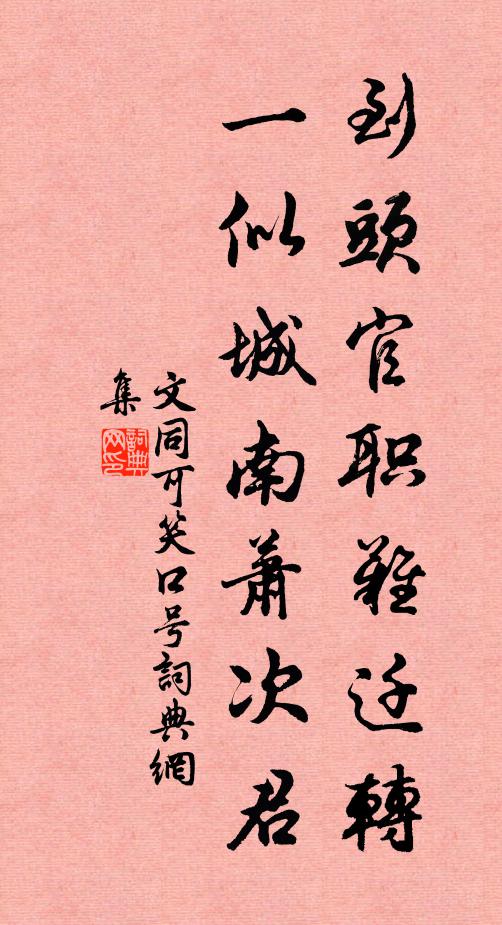 到頭官职難迁轉
一似城南蕭次君
文同可笑口号詞典網
集
詞典网印